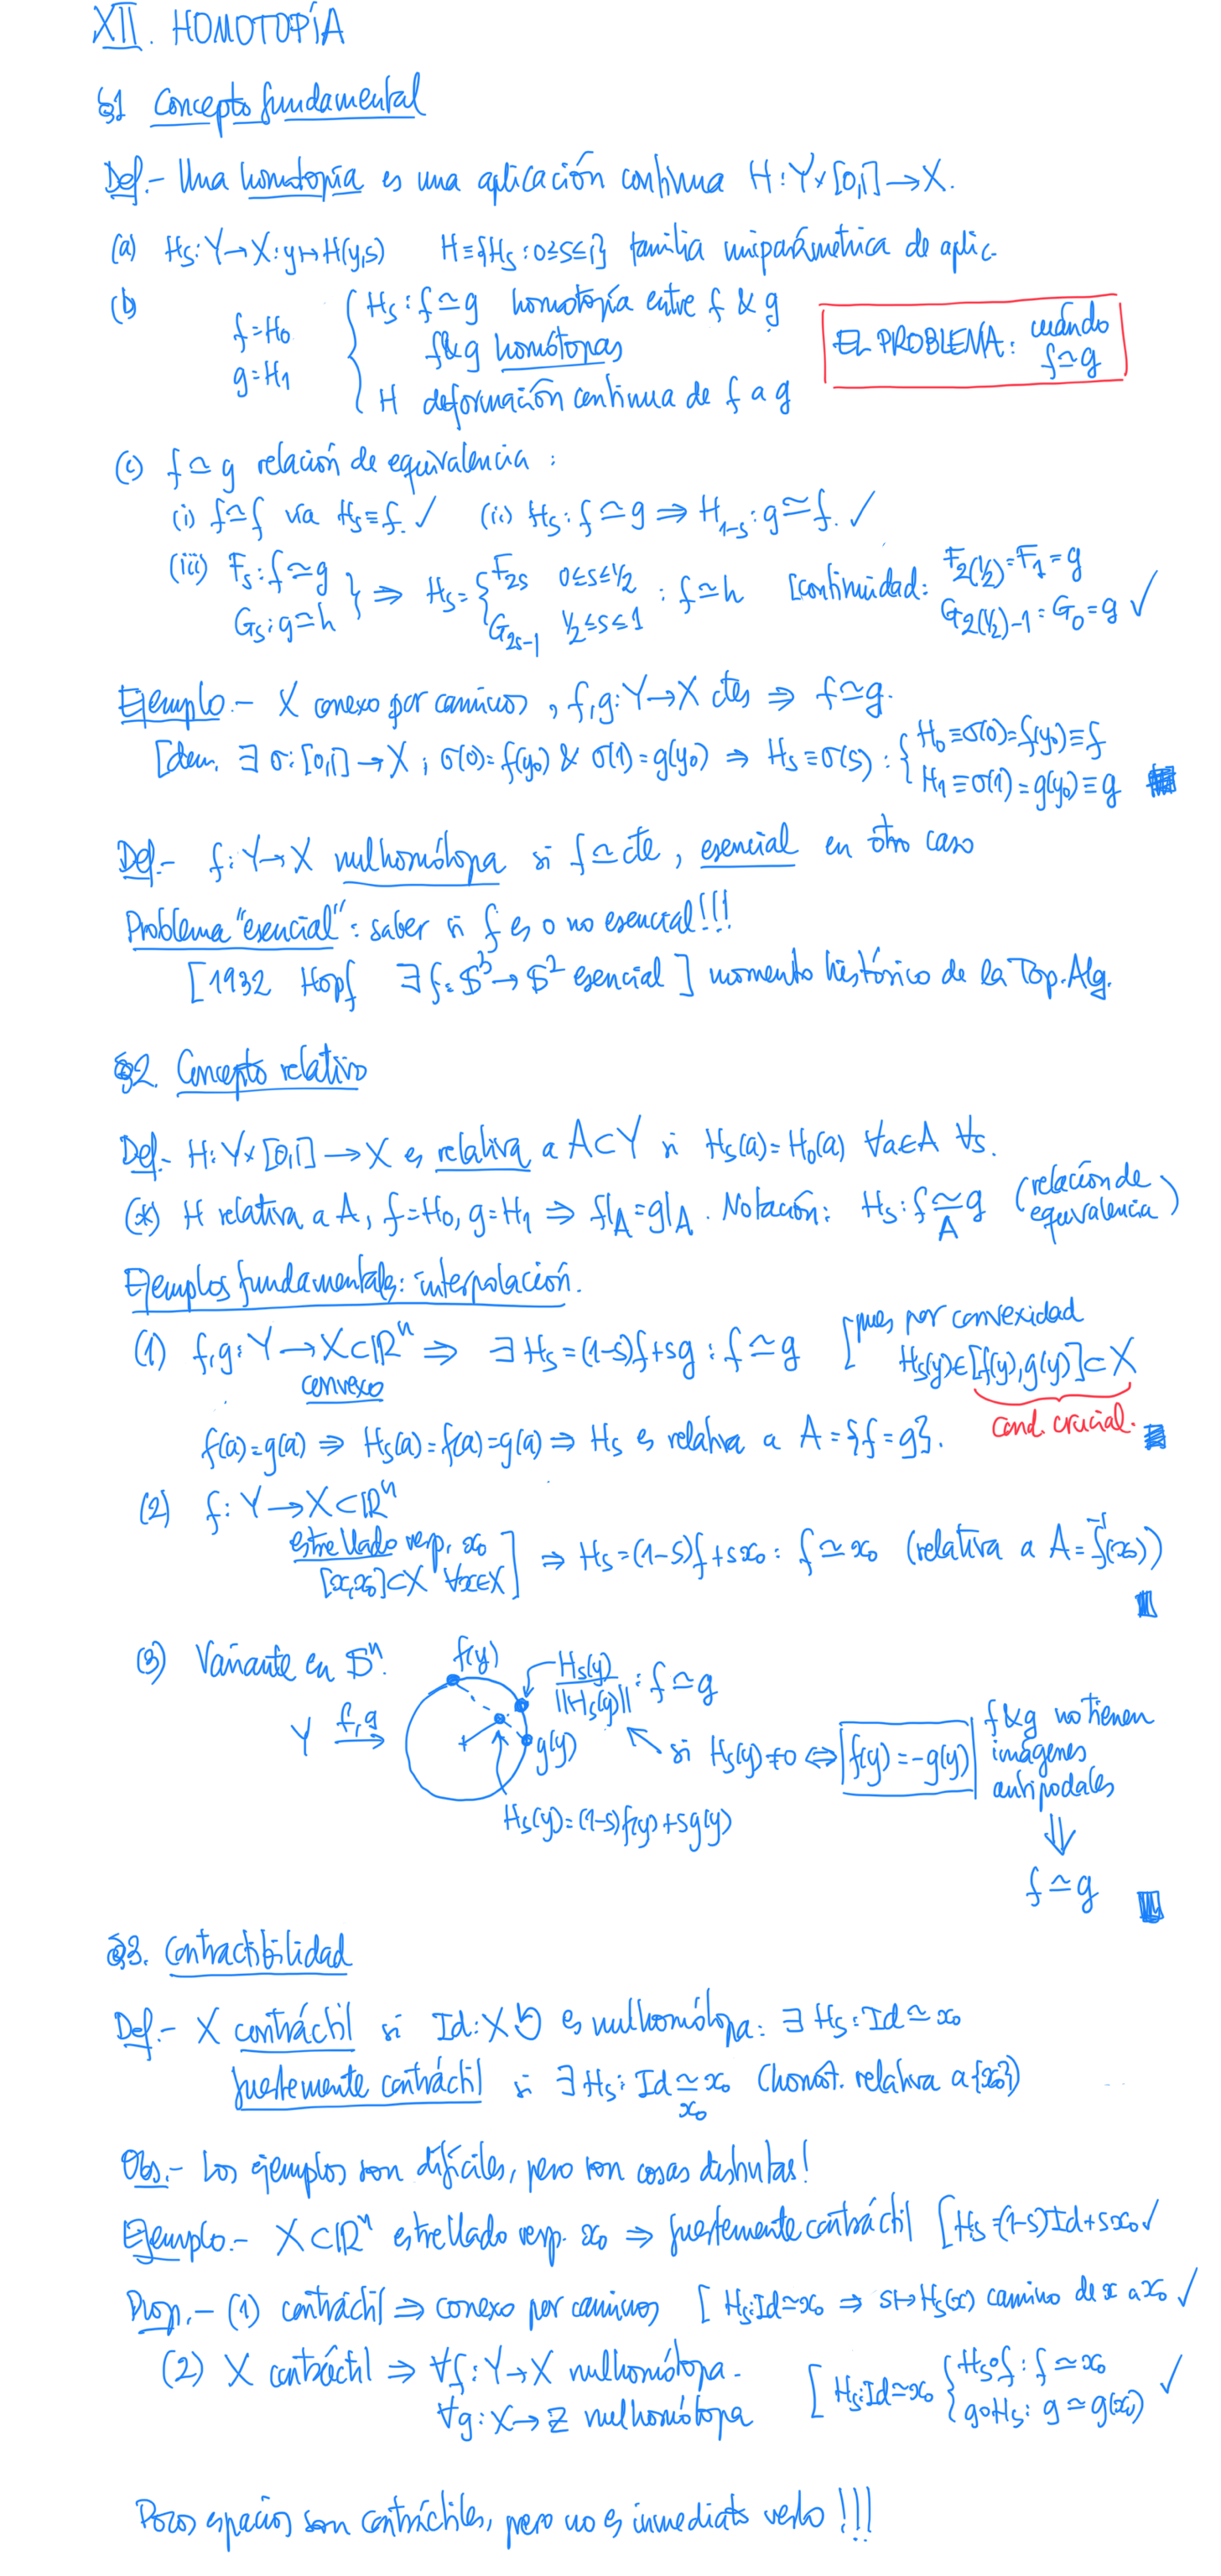 XII. HOMOTOPÍA
§1 Concepto fundamental
Def.- Una homotopía es una aplicación continua H: Y×[0,1]→X.
(a) Hs: Y→X: y↦H(y,s)   H≡{Hs: 0≤s≤1} familia uniparámetrica de aplic.
(b) f=H0 g=H1 { Hs: f≃g homotopía entre f & g
f&g homótopas
H deformación continua de f a g
EL PROBLEMA: cuándo f≃g
(c) f≃g relación de equivalencia:
(i) f≃f vía Hs≡f. ✓ (ii) Hs: f≃g ⇒ H1-s: g≃f. ✓
(iii) Fs: f≃g Gs: g≃h } ⇒ Hs = { F2s 0≤s≤1/2 G2s-1 1/2≤s≤1 : f≃h [continuidad: F2(1/2)=F1=g G2(1/2)-1=G0=g ✓
Ejemplo.- X conexo por caminos, f,g: Y→X ctes ⇒ f≃g.
[dem. ∃ σ: [0,1]→X; σ(0)=f(y0) & σ(1)=g(y0) ⇒ Hs≡σ(s): { H0≡σ(0)=f(y0)≡f H1≡σ(1)=g(y0)≡g
Def.- f: Y→X nulhomótopa si f≃cte, esencial en otro caso
Problema "esencial": saber si f es o no esencial!!!
[1932 Hopf ∃ f: S³→S² esencial] momento histórico de la Top. Alg.
§2. Concepto relativo
Def.- H: Y×[0,1]→X es relativa a A⊂Y si Hs(a)=H0(a) ∀a∈A ∀s.
(*) H relativa a A, f=H0, g=H1 ⇒ f|A=g|A. Notación: Hs: f ≃A g (relación de equivalencia)
Ejemplos fundamentales: interpolación.
(1) f,g: Y→X⊂ℝⁿ convexo ⇒ ∃ Hs=(1-s)f+sg: f≃g [pues por convexidad Hs(y)∈[f(y),g(y)]⊂X
cond. crucial.
f(a)=g(a) ⇒ Hs(a)=f(a)=g(a) ⇒ Hs es relativa a A={f=g}.
(2) f: Y→X⊂ℝⁿ
estrellado resp. x0 [x,x0]⊂X ∀x∈X ] ⇒ Hs=(1-s)f+sx0: f≃x0 (relativa a A=f⁻¹(x0))
(3) Variante en Sⁿ.
f(y)
Hs(y)/||Hs(y)|| : f≃g
Y f,g→
g(y)
si Hs(y)≠0 ⇔ f(y)=-g(y)
f&g no tienen imágenes antipodales
Hs(y)=(1-s)f(y)+sg(y)
⇓
f≃g
§3. Contractibilidad
Def.- X contráctil si Id: X↺ es nulhomótopa: ∃ Hs: Id≃x0
fuertemente contráctil si ∃ Hs: Id ≃x0 x0 (homot. relativa a {x0})
Obs.- Los ejemplos son difíciles, pero son cosas distintas!
Ejemplo.- X⊂ℝⁿ estrellado resp. x0 ⇒ fuertemente contráctil [Hs=(1-s)Id+sx0 ✓
Prop.- (1) contráctil ⇒ conexo por caminos [Hs: Id≃x0 ⇒ s↦Hs(x) camino de x a x0 ✓
(2) X contráctil ⇒ ∀f: Y→X nulhomótopa.
∀g: X→Z nulhomótopa [Hs: Id≃x0 { Hs∘f: f≃x0 g∘Hs: g≃g(x0) ✓
Pocos espacios son contráctiles, pero no es inmediato verlo!!!